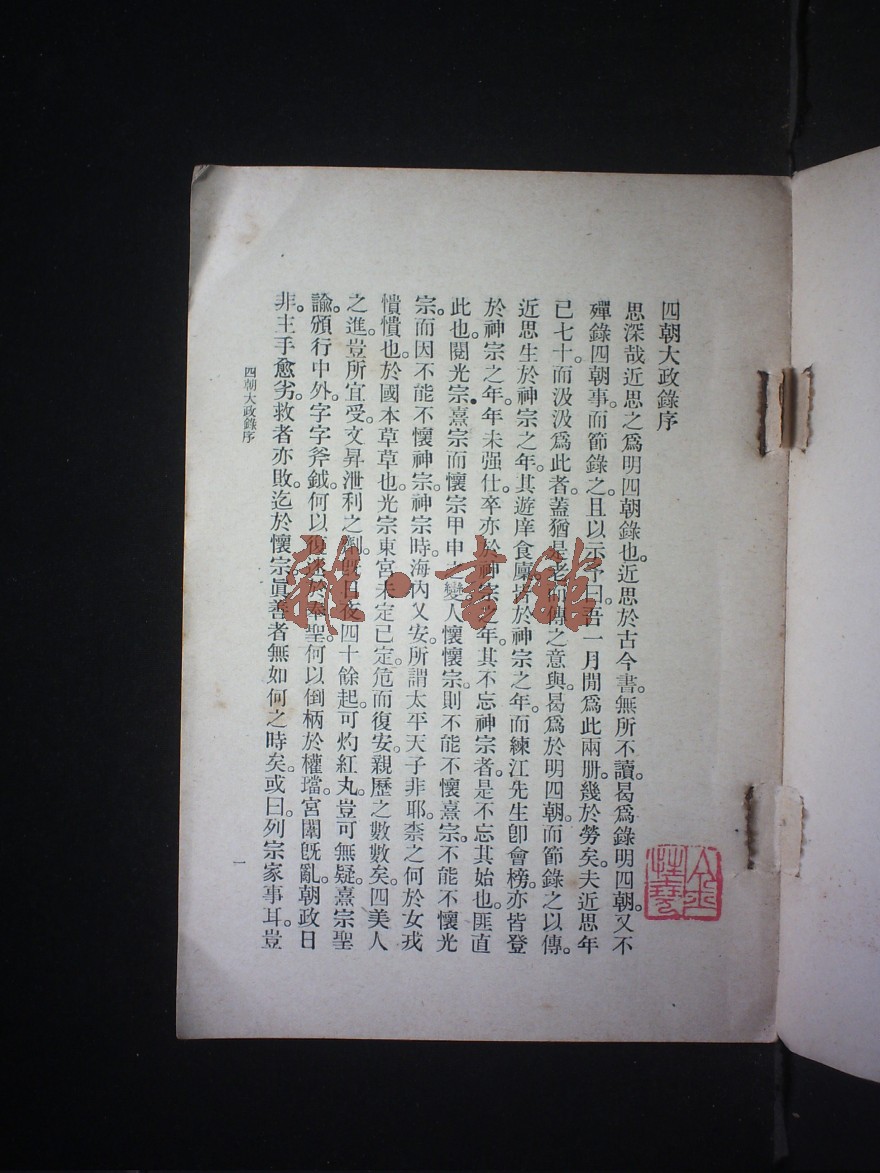 四朝大政錄序
思深哉近思之爲明四朝錄也。近思於古今書。無所不讀。曷爲錄明四朝。又不
殫錄四朝事。而節錄之。且以示予曰。吾一月閒爲此兩册。幾於勞矣。夫近思年
已七十。而汲汲爲此者。蓋猶是老而傳之意與。曷爲於明四朝。而節錄之以傳。
近思生於神宗之年。其遊庠食廩於神宗之年。而練江先生卽會榜。亦皆登
於神宗之年。年未强仕。卒亦於神宗之年。其不忘神宗者。是不忘其始也。匪直
此也。閱光宗熹宗。而懷宗甲申之變。人懷懷宗。則不能不懷熹宗。不能不懷光
宗。而因不能不懷神宗。神宗時。海內乂安。所謂太平天子非耶。柰之何於女戎
憒憒也。於國本草草也。光宗東宮未定已定。危而復安。親歷之數數矣。四美人
之進。豈所宜受。文昇泄利之劑。旣日夜四十餘起。可灼紅丸。豈可無疑。熹宗聖
諭。頒行中外。字字斧鉞。何以復迷於奉聖。何以倒柄於權璫。宮闈旣亂。朝政日
非。主手愈劣。救者亦敗。迄於懷宗。眞善者無如何之時矣。或曰。列宗家事耳。豈
四朝大政錄序
一
雜·書館